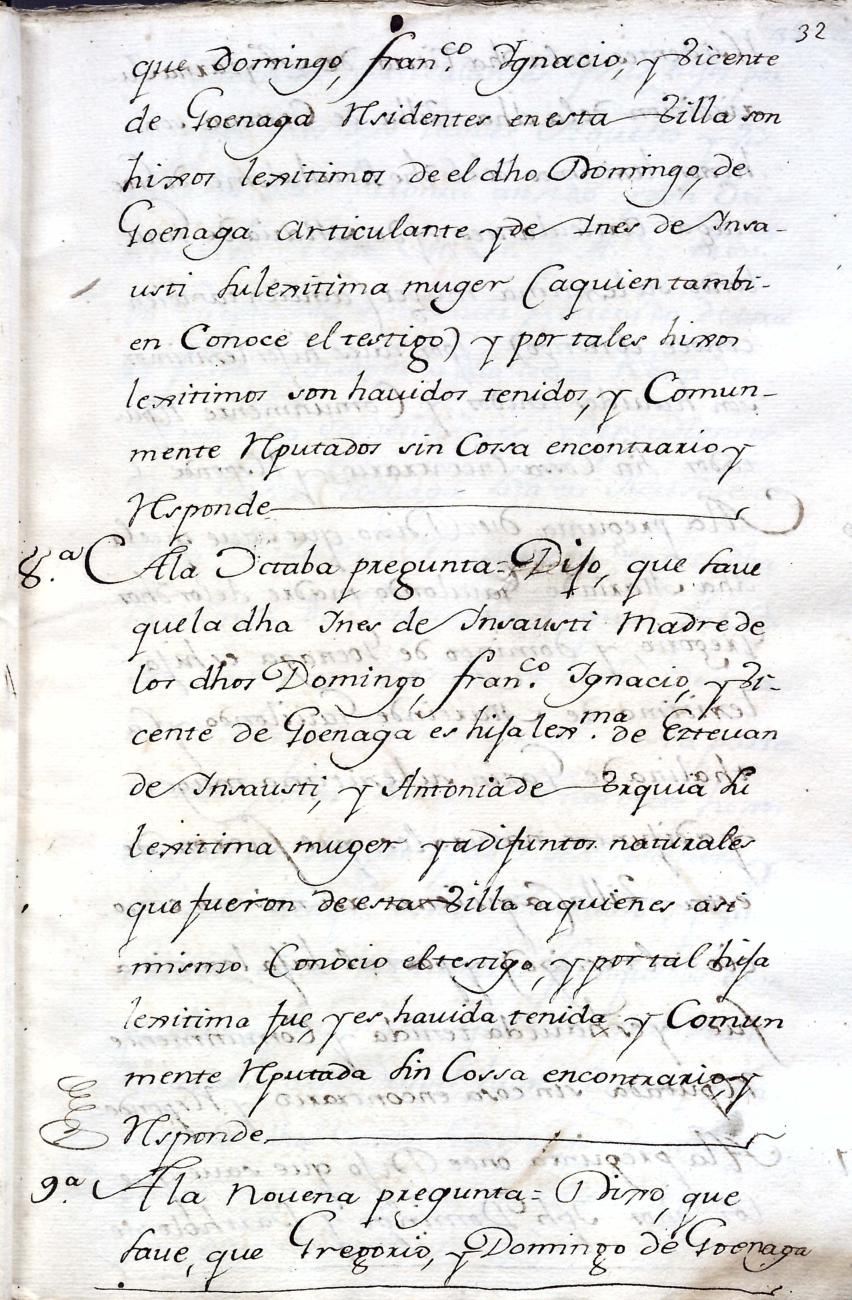 32
que Domingo, fran.co Ygnacio, y Vicente
de Goenaga Residentes enesta Villa son
hixos lexitimos de el dho Domingo, de
Goenaga articulante y de Ines de Insa-
usti su lexitima muger (aquien tambi-
en Conoce el testigo) y por tales hixos
lexitimos son hauidos tenidos, y Comun-
mente Reputados sin Cossa encontrario y
Responde
8.a Ala Octaba pregunta = Dijo, que save
que la dha Ines de Insausti Madre de
los dhos Domingo, fran.co Ygnacio, y Vi-
cente de Goenaga es hija lex.ma de Eztevan
de Insausti, y Antonia de Vrquia su
lexitima muger ya difuntos naturales
que fueron de esta Villa aquienes asi
mismo Conocio el testigo, y por tal hija
lexitima fue, y es, hauida tenida y Comun
mente Reputada sin Cossa encontrario, y
Responde
9.a Ala novena pregunta = Dixo, que
save, que Gregorio, y Domingo de Goenaga